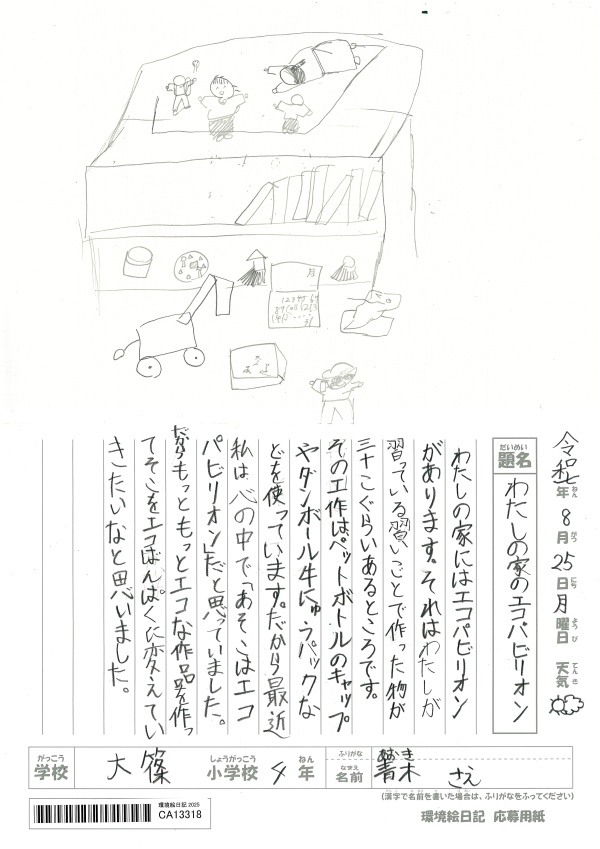 月
1234567
令和7年8月25日月曜日 天気
ねん がつ にち ようび てんき
だいめい
題名 わたしの家のエコパビリオン
わたしの家にはエコパビリオン
があります。それはわたしが
習っている習いごとで作った物が
三十こぐらいあるところです。
その工作はペットボトルのキャップ
やダンボール牛にゅうパックな
どを使っています。だから最近
私は心の中で「あそこはエコ
パビリオン」だと思っていました。
だからもっともっとエコな作品を作っ
てそこをエコばんぱくに変えてい
きたいなと思いました。
がっこう しょうがっこう ねん
学校 大篠 小学校 4年
ふりがな あおき
なまえ
名前 青木 さえ
(漢字で名前を書いた場合は、ふりがなをふってください)
環境絵日記 2025
CA13318
環境絵日記 応募用紙